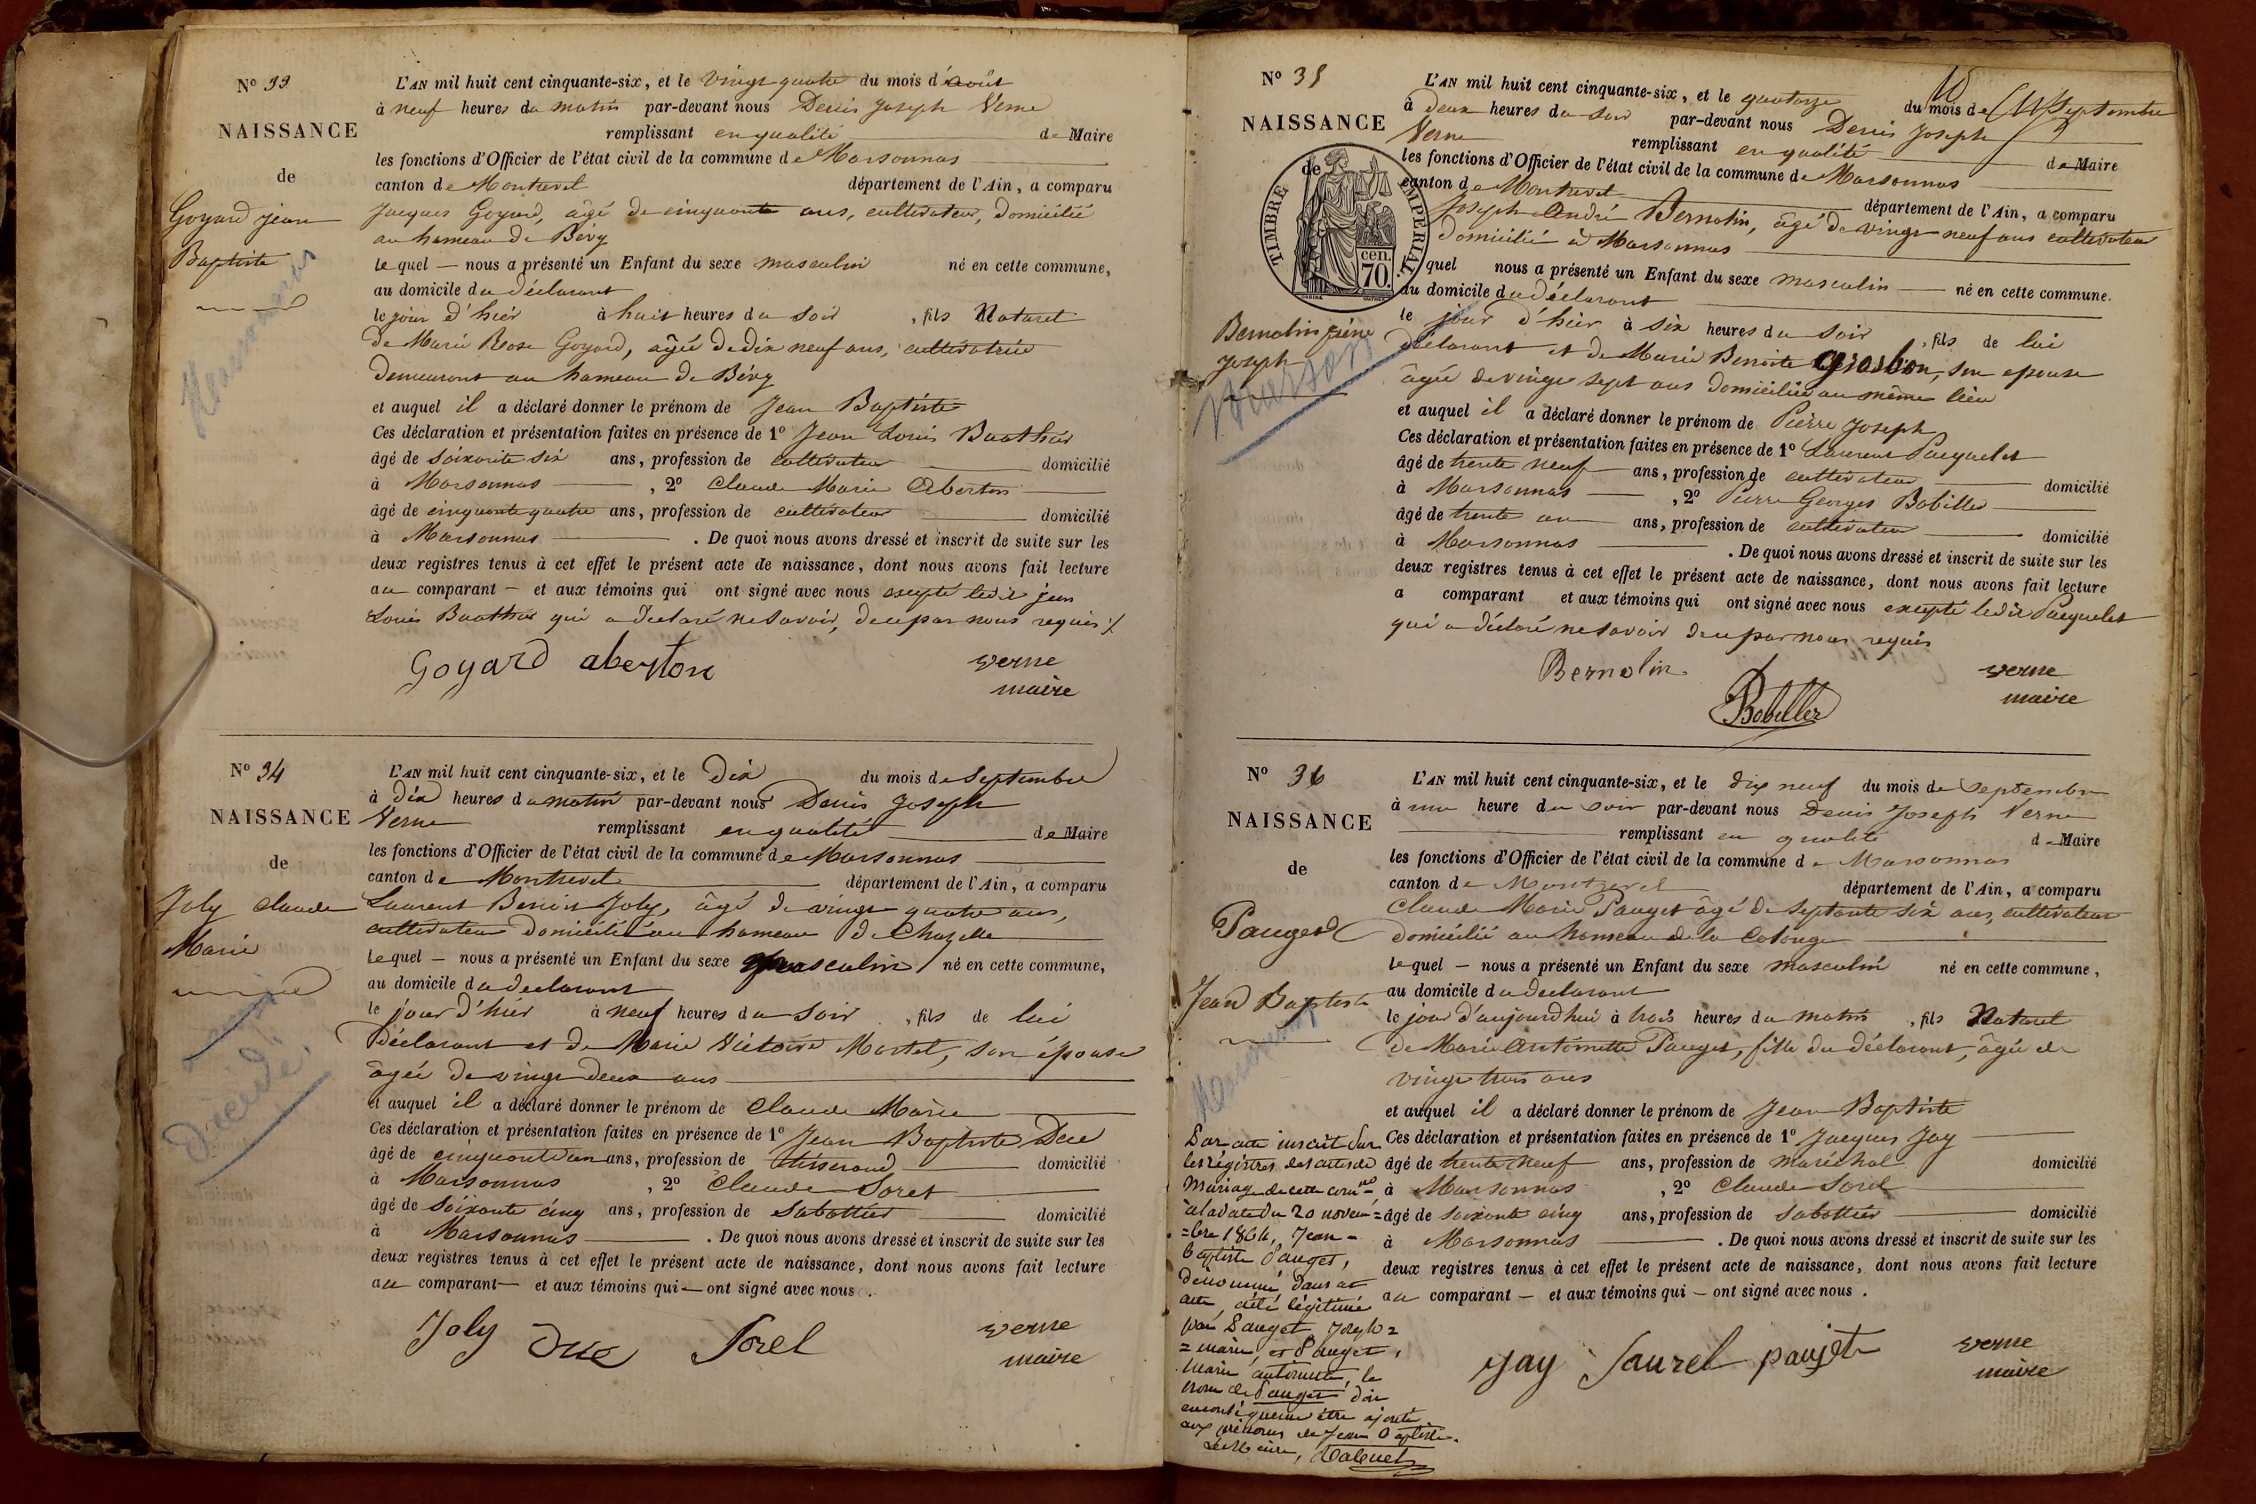 N° 33
NAISSANCE
de
Goyard Jean
Baptiste
L'AN mil huit cent cinquante-six, et le vingt quatre du mois d'août
à neuf heures du matin par-devant nous Denis Joseph Verne
remplissant en qualité de Maire
les fonctions d'Officier de l'état civil de la commune de Marsonnas
canton de Montrevel département de l'Ain, a comparu
Jacques Goyard, âgé de cinquante ans, cultivateur, domicilié
au hameau de Bévy
lequel — nous a présenté un Enfant du sexe masculin né en cette commune,
au domicile du déclarant
le jour d'hier à huit heures du soir, fils Naturel
de Marie Rose Goyard, âgée de dix neuf ans, cultivatrice
demeurant au hameau de Bévy
et auquel il a déclaré donner le prénom de Jean Baptiste
Ces déclaration et présentation faites en présence de 1° Jean Louis
âgé de soixante six ans, profession de cultivateur domicilié
à Marsonnas, 2° Claude Marie Aberton
âgé de cinquante quatre ans, profession de cultivateur domicilié
à Marsonnas. De quoi nous avons dressé et inscrit de suite sur les
deux registres tenus à cet effet le présent acte de naissance, dont nous avons fait lecture
au comparant — et aux témoins qui ont signé avec nous excepté ledit jean
Louis qui a déclaré ne savoir, de ce par nous requis
Goyard aberton verne
maire
N° 34
NAISSANCE
de
Joly Claude
Marie
L'AN mil huit cent cinquante-six, et le Dix du mois de Septembre
à dix heures du matin par-devant nous Denis Joseph
Verne remplissant en qualité de Maire
les fonctions d'Officier de l'état civil de la commune de Marsonnas
canton de Montrevel département de l'Ain, a comparu
Laurent Benoit Joly, âgé de vingt quatre ans,
cultivateur domicilié au hameau de Chazelle
lequel — nous a présenté un Enfant du sexe masculin né en cette commune,
au domicile du déclarant
le jour d'hier à neuf heures du soir, fils de lui
déclarant et de Marie Victoire Martel, son épouse
âgée de vingt deux ans
et auquel il a déclaré donner le prénom de Claude Marie
Ces déclaration et présentation faites en présence de 1° Jean Baptiste Duc
âgé de cinquante un ans, profession de tisserand domicilié
à Marsonnas, 2° Claude Sorel
âgé de soixante cinq ans, profession de Sabottier domicilié
à Marsonnas. De quoi nous avons dressé et inscrit de suite sur les
deux registres tenus à cet effet le présent acte de naissance, dont nous avons fait lecture
au comparant — et aux témoins qui — ont signé avec nous.
Joly Duc Sorel verne
maire
N° 35
NAISSANCE
de
TIMBRE IMPERIAL.
cen.
70.
Bernolin Pierre
Joseph
L'AN mil huit cent cinquante-six, et le quatorze du mois de Septembre
à deux heures du soir par-devant nous Denis Joseph
Verne remplissant en qualité de Maire
les fonctions d'Officier de l'état civil de la commune de Marsonnas
canton de Montrevel département de l'Ain, a comparu
Joseph André Bernolin, âgé de vingt neuf ans cultivateur
domicilié à Marsonnas
quel nous a présenté un Enfant du sexe masculin — né en cette commune.
au domicile du déclarant
le jour d'hier à six heures du soir, fils de lui
déclarant et de Marie Benoite Grosbon, son épouse
âgée de vingt sept ans domiciliée au même lieu
et auquel il a déclaré donner le prénom de Pierre Joseph
Ces déclaration et présentation faites en présence de 1° Laurent Paequelet
âgé de trente neuf ans, profession de cultivateur domicilié
à Marsonnas, 2° Pierre Georges Bobiller
âgé de trente un ans, profession de cultivateur domicilié
à Marsonnas. De quoi nous avons dressé et inscrit de suite sur les
deux registres tenus à cet effet le présent acte de naissance, dont nous avons fait lecture
a comparant et aux témoins qui ont signé avec nous excepté ledit Paequelet
qui a déclaré ne savoir de ce par nous requis
Bernolin verne
Bobiller maire
N° 36
NAISSANCE
de
Pauget
Jean Baptiste
L'AN mil huit cent cinquante-six, et le dix neuf du mois de septembre
à une heure du soir par-devant nous Denis Joseph Verne
remplissant en qualité de Maire
les fonctions d'Officier de l'état civil de la commune de Marsonnas
canton de Montrevel département de l'Ain, a comparu
Claude Marie Pauget âgé de septante six ans, cultivateur
domicilié au hameau de la Colonge
lequel — nous a présenté un Enfant du sexe masculin né en cette commune,
au domicile du déclarant
le jour d'aujourd'hui à trois heures du matin, fils Naturel
de Marie Antoinette Pauget, fille du déclarant, âgée de
vingt trois ans
et auquel il a déclaré donner le prénom de Jean Baptiste
Ces déclaration et présentation faites en présence de 1° Jacques Jay
âgé de trente neuf ans, profession de maréchal domicilié
à Marsonnas, 2° Claude Sorel
âgé de soixante cinq ans, profession de sabottier domicilié
à Marsonnas. De quoi nous avons dressé et inscrit de suite sur les
deux registres tenus à cet effet le présent acte de naissance, dont nous avons fait lecture
au comparant — et aux témoins qui — ont signé avec nous.
Jay Saurel paujet verne
maire
Par acte inscrit sur
les régistres des actes de
Mariage de cette comne
à la date du 20 novem=
=bre 1864, Jean-
baptiste Pauget,
dénommé dans cet
acte, a été légitimé
par Pauget, Joseph=
=marie, et Pauget,
Marie antoinette, le
nom de Pauget doit
en conséquence être ajouté
aux prénoms de Jean Baptiste.
Le Maire,